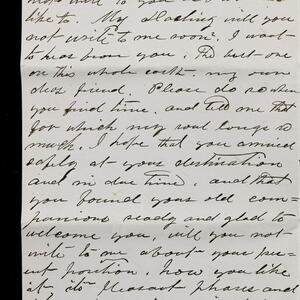 like to. My Darling will you
not write to me soon? I want
to hear from you, The best one
on this whole earth my own
dear friend. Please do so when
you find time, and tell me that
for which my soul longs so
much. I hope that you arrived
safely at your destination
and in due time, and that
you found your old com-
panions ready and glad to
welcome you, will you not
write to me about your pres-
ent position, how you like
it, its pleasant phases and